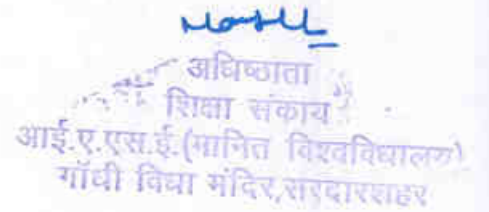 अधिष्ठाता
शिक्षा संकाय
आई.ए.एस.ई.(मानित विश्वविधालय)
गाँधी विधा मंदिर,सरदारशहर